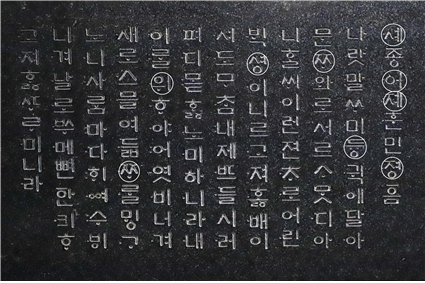 셰종어졔훈민졍음
나랏말ᄊᆞ미듕귁에달아
문ᄍᆞ와로서르ᄉᆞᄆᆞᆺ디아
니ᄒᆞᆯᄊᆡ이런젼ᄎᆞ로어린
ᄇᆡᆨ셩이니르고져호ᇙ배이
셔도ᄆᆞᄎᆞᆷ내제ᄠᅳ들시러
펴디몯ᄒᆞᇙ노미하니라내
이ᄅᆞᆯ윙ᄒᆞ야어엿비너겨
새로스믈여듧ᄍᆞᄅᆞᆯᄆᆡᇰᄀᆞ
노니사ᄅᆞᆷ마다ᄒᆡᅇᅧ수ᄫᅵ
니겨날로ᄡᅮ메뼌한킈ᄒᆞ
고져ᄒᆞᇙᄯᆞᄅᆞ미니라